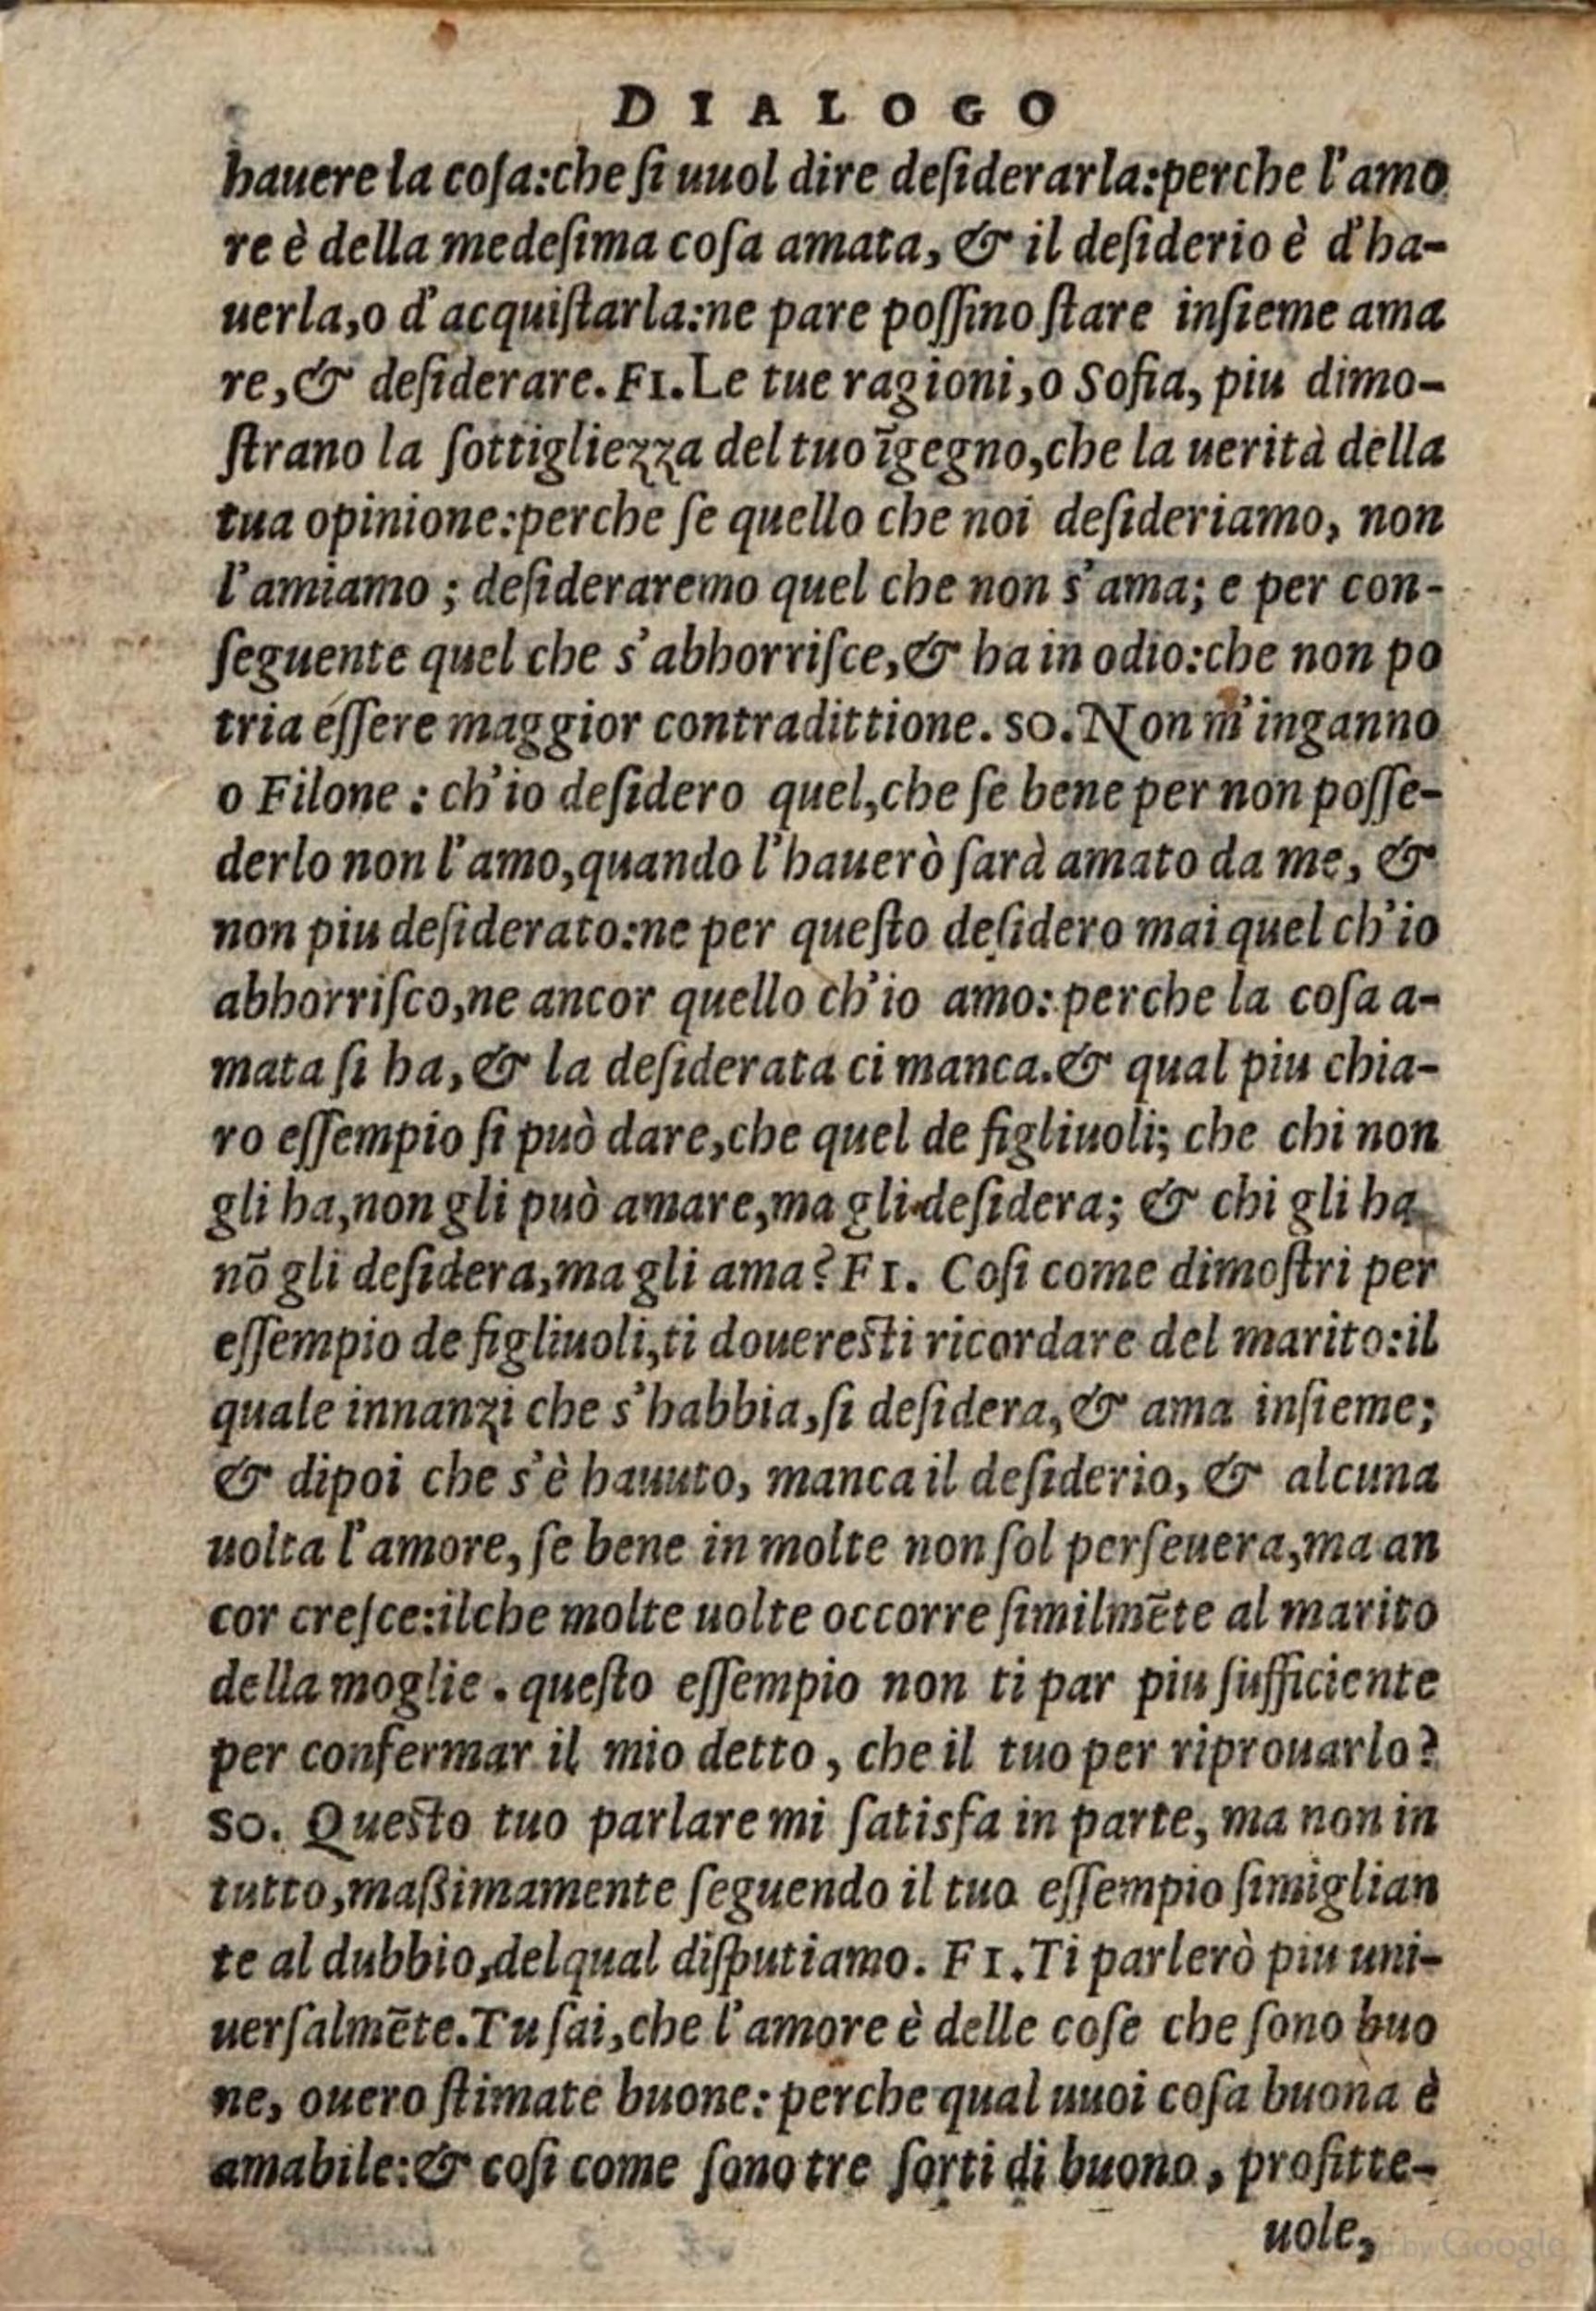 DIALOGO
hauere la coſa:che ſi uuol dire deſiderarla:perche l'amo
re è della medeſima coſa amata, & il deſiderio è d'ha-
uerla,o d'acquiſtarla:ne pare poſſino ſtare inſieme ama
re,& deſiderare. FI. Le tue ragioni,o Sofia, piu dimo-
ſtrano la ſottigliezza del tuo īgegno,che la uerità della
tua opinione:perche ſe quello che noi deſideriamo, non
l'amiamo ; deſideraremo quel che non s'ama; e per con-
ſeguente quel che s'abhorriſce,& ha in odio:che non po
tria eſſere maggior contradittione. SO. Non m'inganno
o Filone : ch'io deſidero quel,che ſe bene per non poſſe-
derlo non l'amo,quando l'hauerò ſarà amato da me, &
non piu deſiderato:ne per queſto deſidero mai quel ch'io
abhorriſco,ne ancor quello ch'io amo:perche la coſa a-
mata ſi ha, & la deſiderata ci manca.& qual piu chia-
ro eſſempio ſi può dare,che quel de figliuoli; che chi non
gli ha,non gli può amare,ma gli deſidera; & chi gli ha
nō gli deſidera,ma gli ama? FI. Coſi come dimoſtri per
eſſempio de figliuoli,ti douereſti ricordare del marito:il
quale innanzi che s'habbia,ſi deſidera, & ama inſieme;
& dipoi che s'è hauuto, manca il deſiderio, & alcuna
uolta l'amore, ſe bene in molte non ſol perſeuera,ma an
cor creſce:ilche molte uolte occorre ſimilmēte al marito
della moglie . queſto eſſempio non ti par piu ſufficiente
per confermar il mio detto , che il tuo per riprouarlo?
SO. Queſto tuo parlare mi ſatisfa in parte, ma non in
tutto,maßimamente ſeguendo il tuo eſſempio ſimiglian
te al dubbio,delqual diſputiamo. FI. Ti parlerò piu uni-
uerſalmēte.Tu ſai,che l'amore è delle coſe che ſono buo
ne, ouero ſtimate buone: perche qual uuoi coſa buona è
amabile:& coſi come ſono tre ſorti di buono , profitte-
uole,
Google